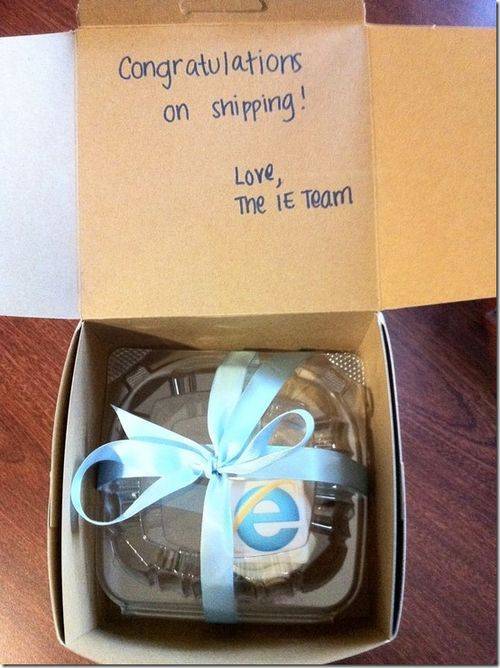 Congratulations
on shipping!
Love,
The IE Team
e